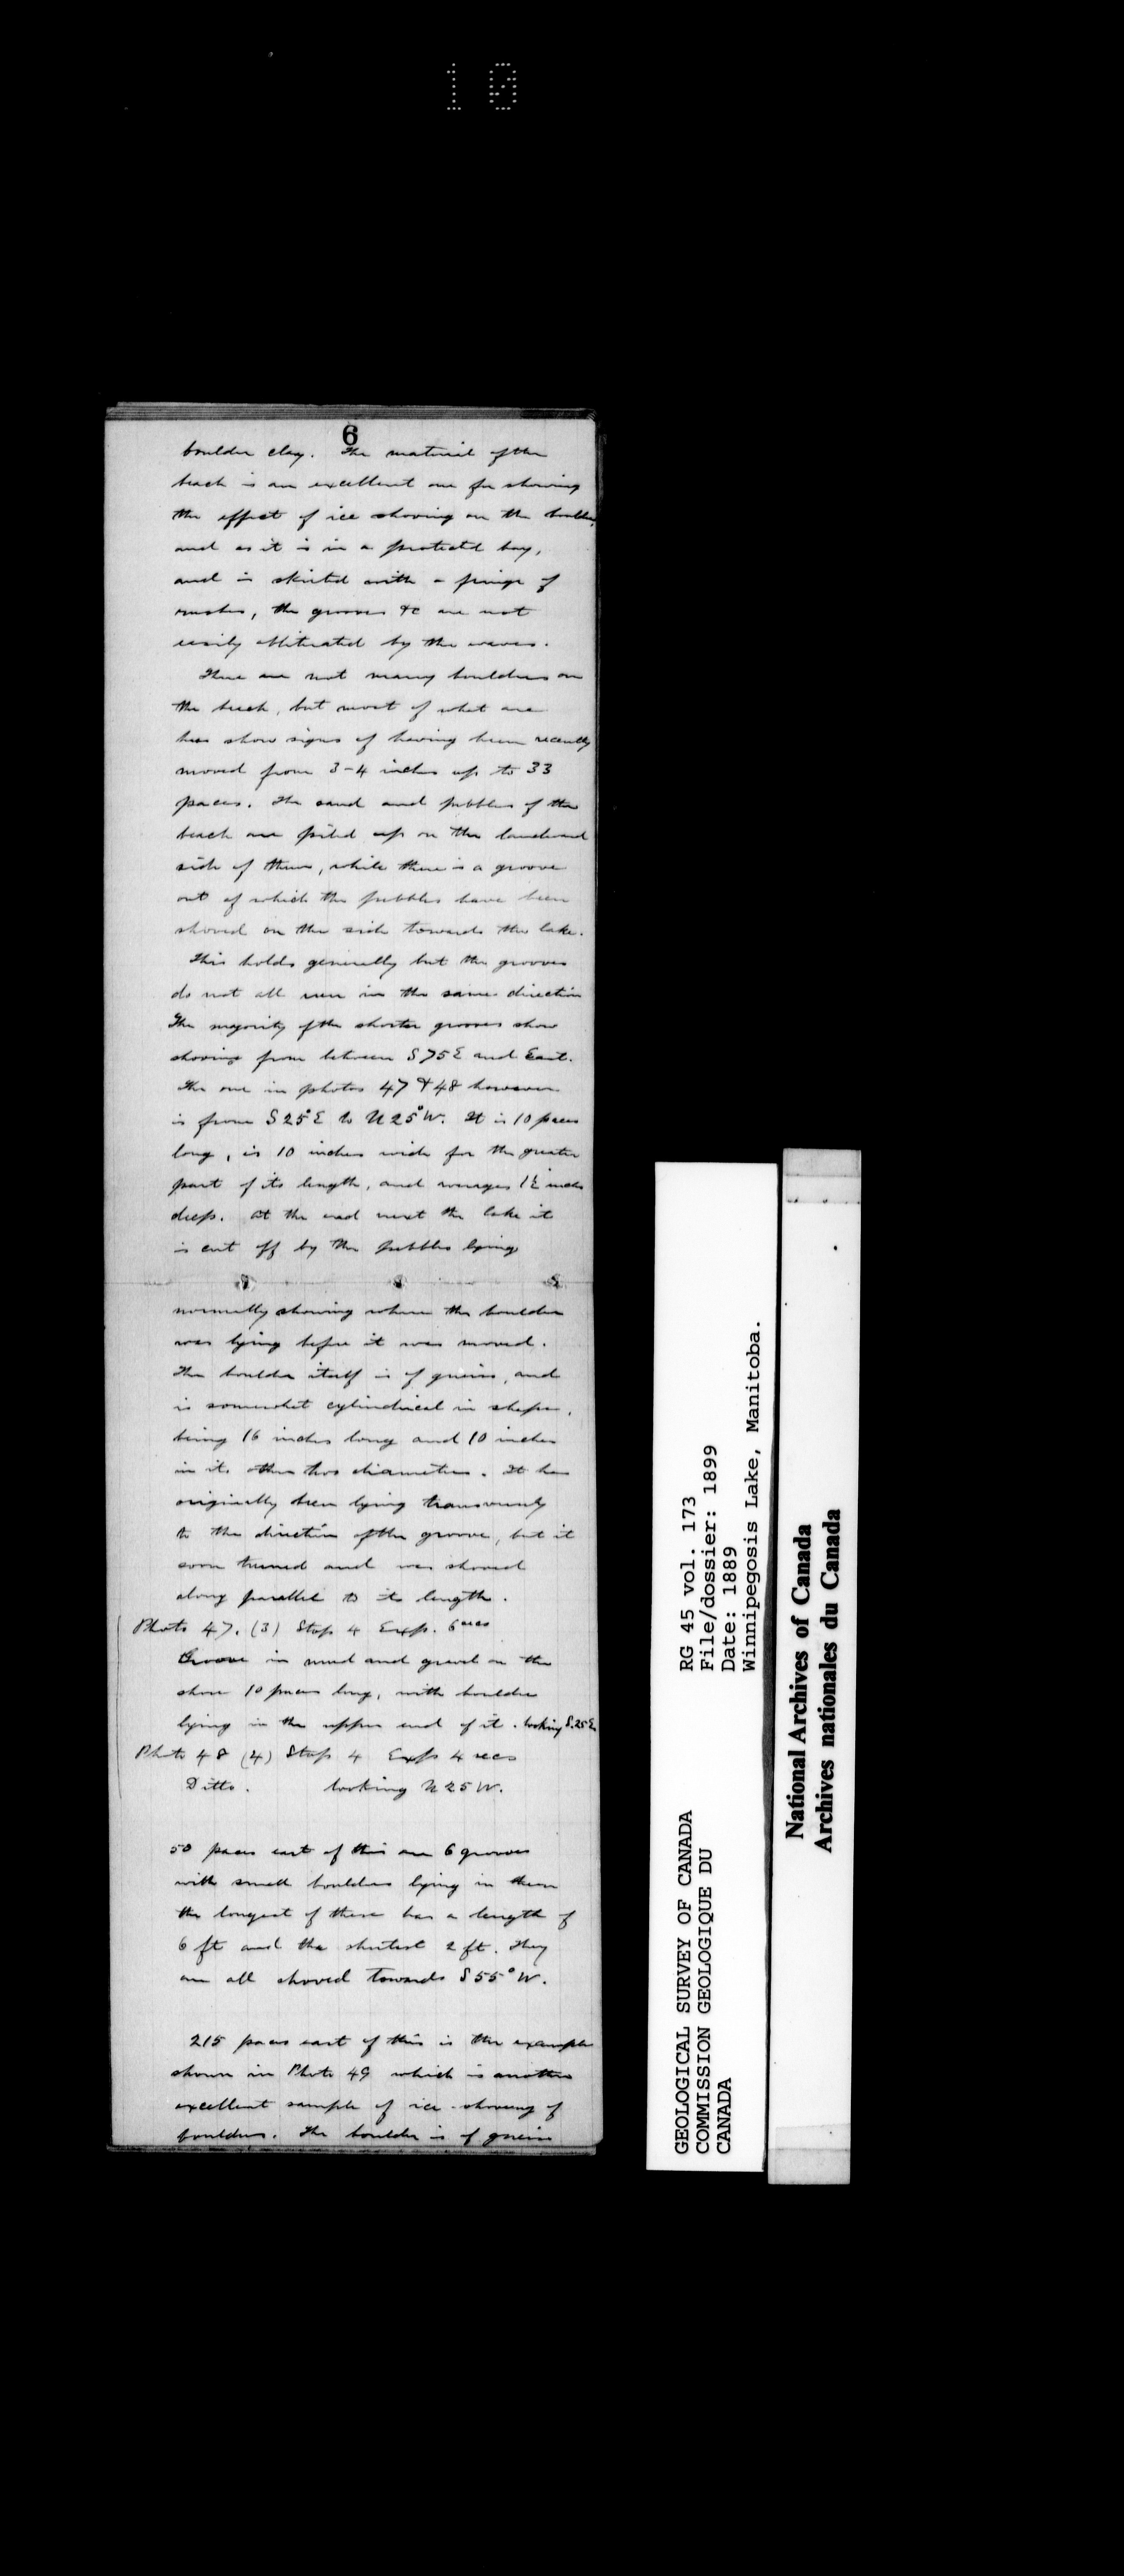 10
6
boulder clay. The material of the
beach is an excellent one for showing
the effect of ice shoving on the boulders,
and as it is in a protected bay,
and is skirted with a fringe of
rushes, the grooves &c are not
easily obliterated by the waves.
There are not many boulders on
the beach, but most of what are
here show signs of having been recently
moved from 3-4 inches up to 33
paces. The sand and pebbles of the
beach are piled up on the landward
side of them, while there is a groove
out of which the pebbles have been
shoved on the side towards the lake.
This holds generally but the grooves
do not all run in the same direction
The majority of the shorter grooves show
shoving from between S75E and East.
The one in photos 47 & 48 however
is from S25°E to N25°W. It is 10 paces
long, is 10 inches wide for the greater
part of its length, and averages 1½ inches
deep. At the end next the lake it
is cut off by the pebbles lying
normally showing where the boulder
was lying before it was moved.
The boulder itself is of gneiss, and
is somewhat cylindrical in shape,
being 16 inches long and 10 inches
in its other two diameters. It has
originally been lying transversely
to the direction of the groove, but it
soon turned and was shoved
along parallel to its length.
Photo 47. (3) Stop 4 Exp. 6 secs
Groove in mud and gravel on the
shore 10 paces long, with boulder
lying in the upper end of it. looking S.25E.
Photo 48 (4) Stop 4 Exp 4 secs
Ditto. looking N25W.
50 paces east of this are 6 grooves
with small boulders lying in them
the longest of these has a length of
6 ft and the shortest 2 ft. They
are all shoved towards S55°W.
215 paces east of this is the example
shown in Photo 49 which is another
excellent sample of ice-shoving of
boulders. The boulder is of gneiss
GEOLOGICAL SURVEY OF CANADA
COMMISSION GEOLOGIQUE DU
CANADA
RG 45 vol. 173
File/dossier: 1899
Date: 1889
Winnipegosis Lake, Manitoba.
National Archives of Canada
Archives nationales du Canada